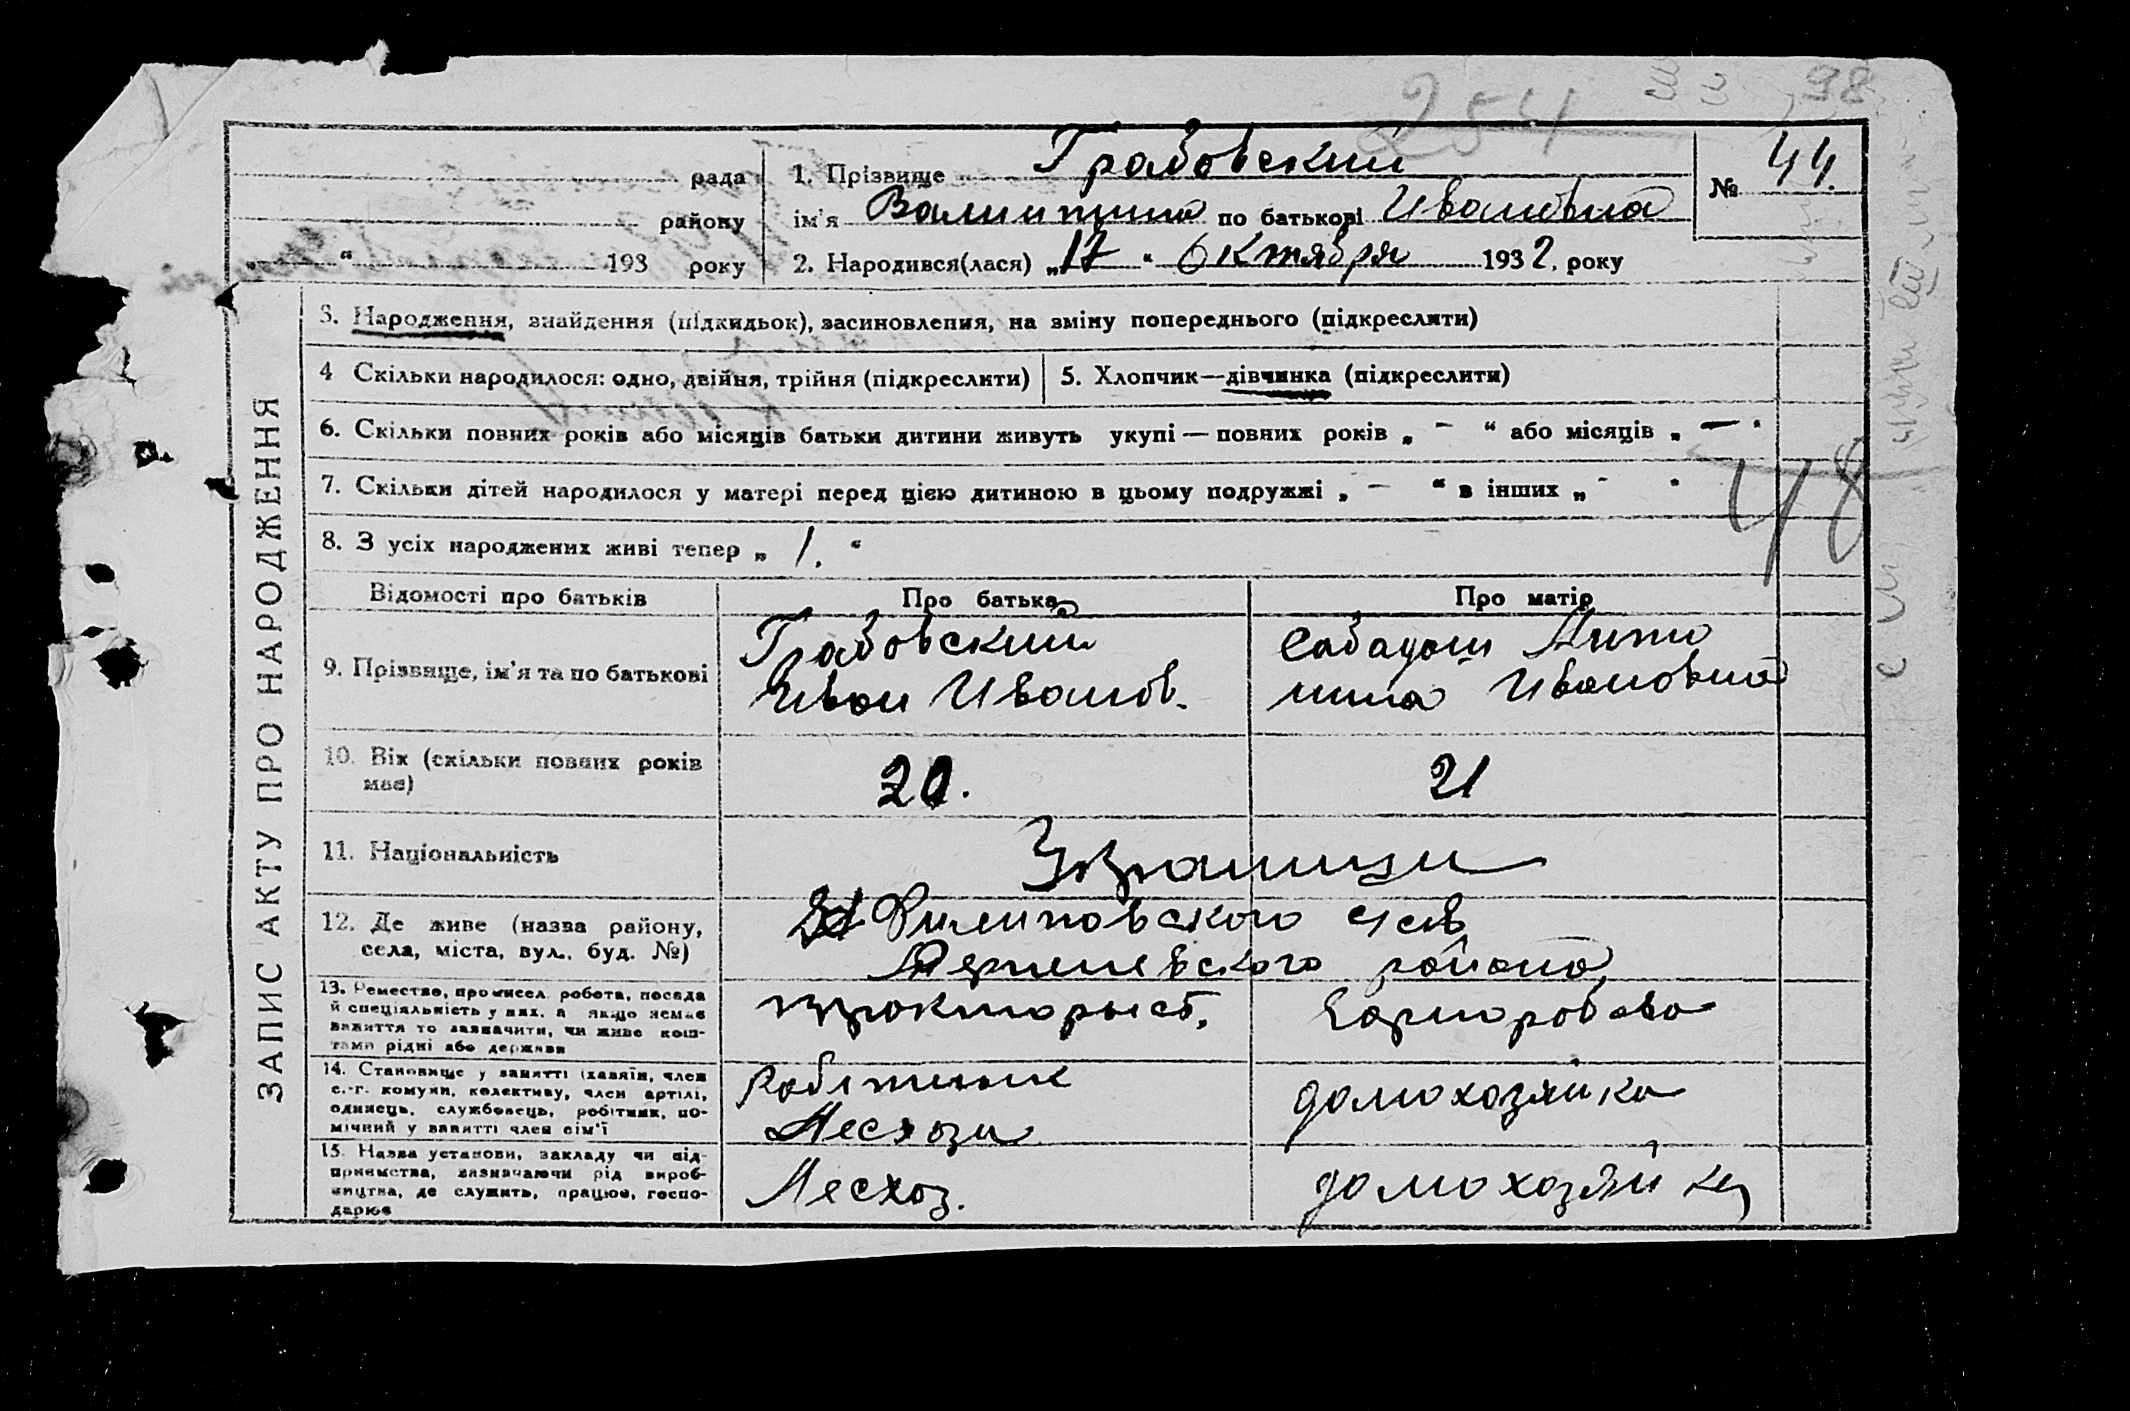 254
98
рада
району
„ “ 193 року
1. Прізвище Грабовский
ім'я Валентина по батькові Ивановна
№ 44.
2. Народився(лася) „17“ Октября 1932, року
ЗАПИС АКТУ ПРО НАРОДЖЕННЯ
3. Народження, знайдення (підкидьок), засиновлення, на зміну попереднього (підкреслити)
4 Скільки народилося: одно, двійня, трійня (підкреслити)
5. Хлопчик—дівчинка (підкреслити)
6. Скільки повних років або місяців батьки дитини живуть укупі — повних років „ – “ або місяців „ —
7. Скільки дітей народилося у матері перед цією дитиною в цьому подружжі „ – “ в інших „ - “
48
8. З усіх народжених живі тепер „ 1. “
Відомості про батьків
Про батька
Про матір
9. Прізвище, ім'я та по батькові
Грабовский
Иван Иванов.
Сабадаш Анто
нина Ивановна
10. Вік (скільки повних років
має)
20.
21
11. Національність
12. Де живе (назва району,
села, міста, вул., буд. №)
Филиповского
района
13. Ремество, промисел, робота, посада
й спеціяльність у них, а якщо немає
заняття то зазначити, чи живе кош-
тами рідні або держави
14. Становище у занятті (хазяїн, член
с.-г. комуни, колективу, член артілі,
одинець, службовець, робітник, по-
мічний у занятті член сім'ї
Робітник
Лесхоза
домохозяйка
15. Назва установи, закладу чи під-
приємства, зазначаючи рід вироб-
ництва, де служить, працює, госпо-
дарює
Лесхоз.
домохозяйка